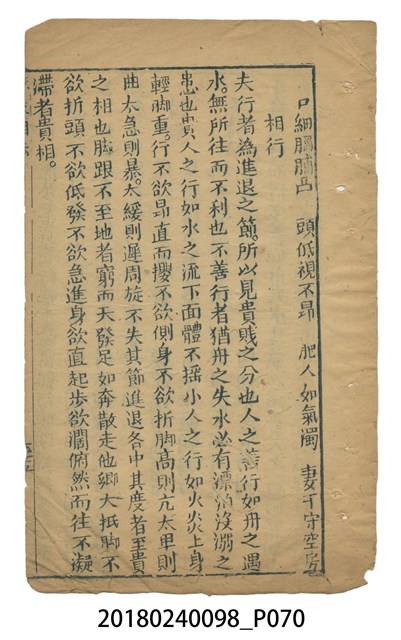 口細胭脯凸　頭低視不昂　肥人如氣濁　妻子守空房
相行
夫行者為進退之節。所以見貴賤之分也人之善行如舟之遇
水。無所往而不利也不善行者猶舟之失水必有漂泊沒溺之
患也貴人之行如水之流下面體不搖小人之行如火炎上身
輕脚重。行不欲昂直而擾不欲側身不欲折脚高則亢太卑則
曲太急則暴。太緩則遲周旋不失其節進退各中其度者至貴
之相也脚跟不至地者窮而夭發足如奔散走他鄉大抵脚不
欲折頭不欲低發不欲急進身欲直起步欲濶俯然而往不凝
滯者貴相。
20180240098_P070